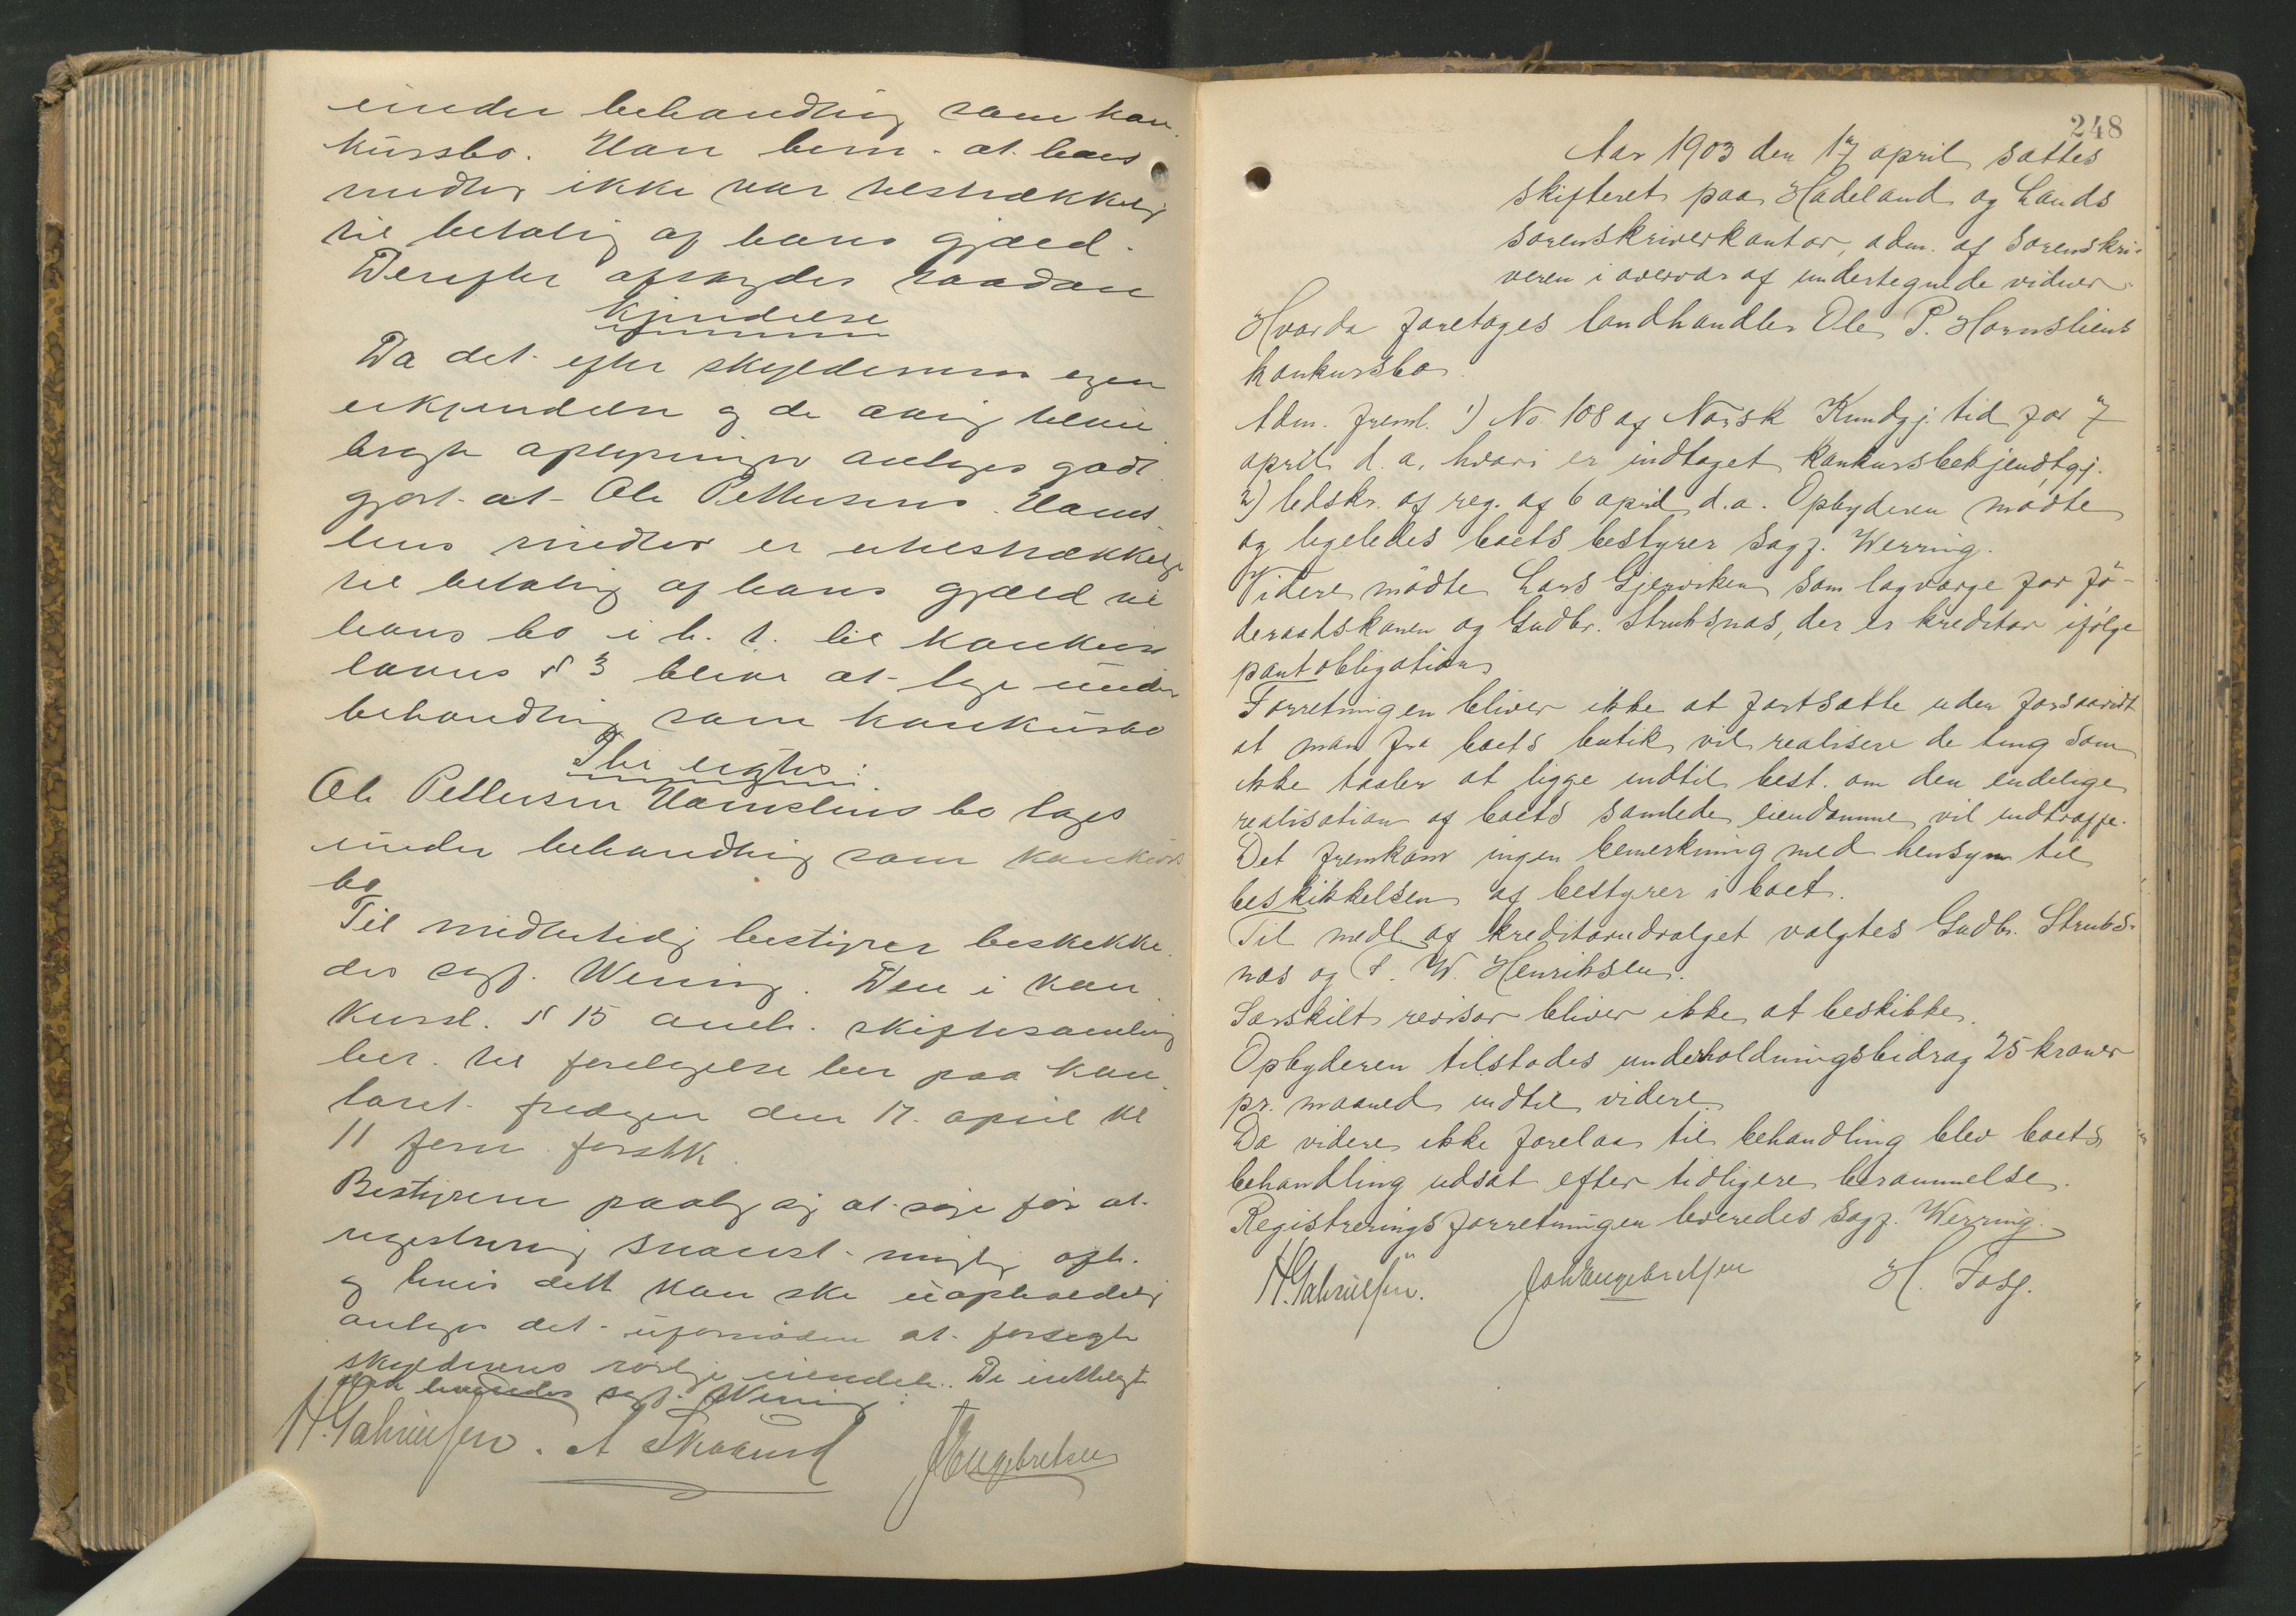 under behandling som kon-
kursbo. Han bem. at hans
midler ikke var tilstrækkelig
til betaling af hans gjæld.
Derefter afsagdes saadan
Kjendelse
Da det efter skyldnerens egen
erkjendelse og de øvrig tilveie-
bragte oplysninger antages godt-
gjort at Ole Pettersens Horns-
liens midler er utilstrækkelige
til betaling af hans gjæld vil
hans bo i h. t. til konkurs
lovens § 3 blive at tage under
behandling som konkursbo
Thi eragtes:
Ole Pettersen Hornsliens bo tages
under behandling som konkurs
bo
Til midlertidig bestyrer beskikke-
des sagf. Werring. Den i kon-
kursl. § 15 anordn. skiftesamling
ber. til foretagelse her paa kon-
toret fredagen den 17. april kl
11 form. førstk.
Bestyreren paalag sig at sørge for at
registrering snarest mulig afh.
og hvis dette kan ske uopholdelig
antages det ufornøden at forsegle
skyldnerens rørlige eiendele. De indlagte
dok. leveredes sagf. Werring.
H. Gabrielsen. A Skaarud JEngebretsen
248
Aar 1903 den 17 april sattes
skifteret paa Hadeland og Lands
sorenskriverkontor, adm. af sorenskri-
veren i overvær af undertegnede vidner.
Hvorda foretages landhandler Ole P. Hornsliens
konkursbo.
Adm. freml. 1) No. 108 af Norsk Kundgj. tid for 7
april d. a. hvori er indtaget konkursbekjendtgj.
2) Udskr. af reg. af 6 april d. a. Opbyderen mødte
og ligeledes boets bestyrer sagf. Werring.
Videre mødte Lars Gjerviken som lagværge for fø-
deraadskonen og Gudbr. Strubsnæs, der er kreditor ifølge
pantobligation
Forretningen bliver ikke at fortsætte uden forsaavidt
at man fra boets butik vil realisere de ting som
ikke taaler at ligge indtil best. om den endelige
realisation af boets samlede eiendomme vil indtræffe.
Det fremkom ingen bemerkning med hensyn til
beskikkelsen af bestyrer i boet.
Til medl. af kreditorudvalget valgtes Gudbr. Strubs-
næs og W. Henriksen.
Særskilt revisor bliver ikke at beskikke.
Opbyderen tilstodes underholdningsbidrag 25 kroner
pr. maaned indtil videre
Da videre ikke forelaa til behandling blev boets
behandling udsat efter tidligere berammelse.
Registreringsforretningen leveredes sagf. Werring.
H. Gabrielsen. Joh Engebretsen H. Foss.